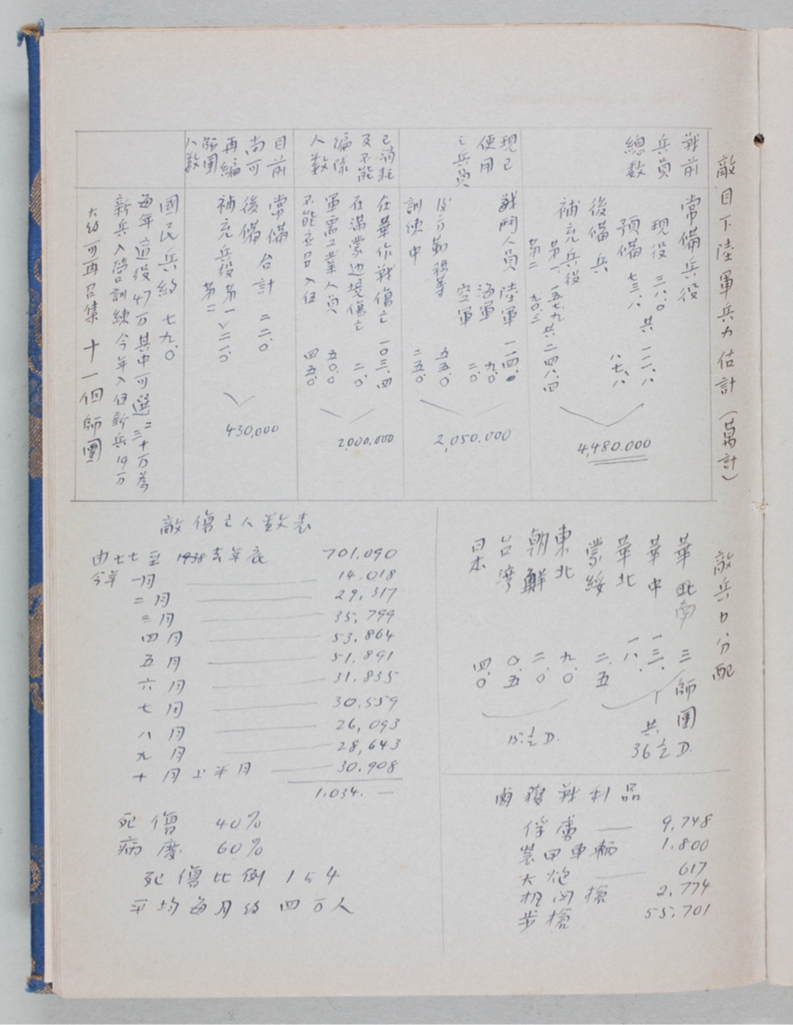 敵目下陸軍兵力估計(萬計)
戰前
兵員
總數
常備兵役
現役 三八.〇
預備 七三.八
共一一一.八
後備兵 八七.八
補充兵役
第一 一五七.九
第二 九〇.三
共二四八.四
4,480.000
現已
使用
之兵員
戰鬥人員 陸軍 一一四.〇
海軍 九.〇
空軍 二.〇
後方勤務等 五五.〇
訓練中 二五.〇
2,050.000
已消耗
及不能
編隊
人數
在華作戰傷亡 一〇三.四
在滿蒙边境傷亡 二.〇
軍需工業人員 五〇.〇
不能应召入伍 四五.〇
2,000,000
目前
尚可
再編
師團
人數
常備
後備
合計 二二.〇
補充兵役 第一
第二
二一.〇
430,000
國民兵約 七九.〇
每年适役47万其中可選二三十万為
新兵入营訓練今年入伍新兵19万
大約可再召集 十一個師團
敵兵力分配
華南 三 師團
華中 一三.
華北 一八.
蒙綏 二.五
共 36½ D.
東北 九.〇
朝鮮 二.〇
台灣 〇.五
日本 四.〇
15.½ D.
敵傷亡人数表
由七七至 1938去年底 701,090
今年 一月 14.018
二月 29,317
三月 35,799
四月 53,864
五月 51,891
六月 31.835
七月 30.559
八月 26,093
九月 28,643
十月上半月 30.908
1.034. —
死傷 40%
病廢 60%
死傷比例 1 5 4
平均每月約四万人
鹵獲戰利品
俘虜 — 9,748
裝甲車輛 1.800
大炮 — 617
机関槍 2,774
步槍 55,701